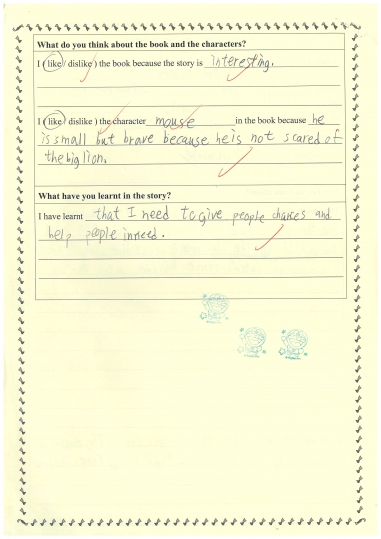 What do you think about the book and the characters?
I ( like / dislike ) the book because the story is interesting.
I ( like / dislike ) the character mouse in the book because he
is small but brave because he is not scared of
the big lion.
What have you learnt in the story?
I have learnt that I need to give people chances and
help people in need.